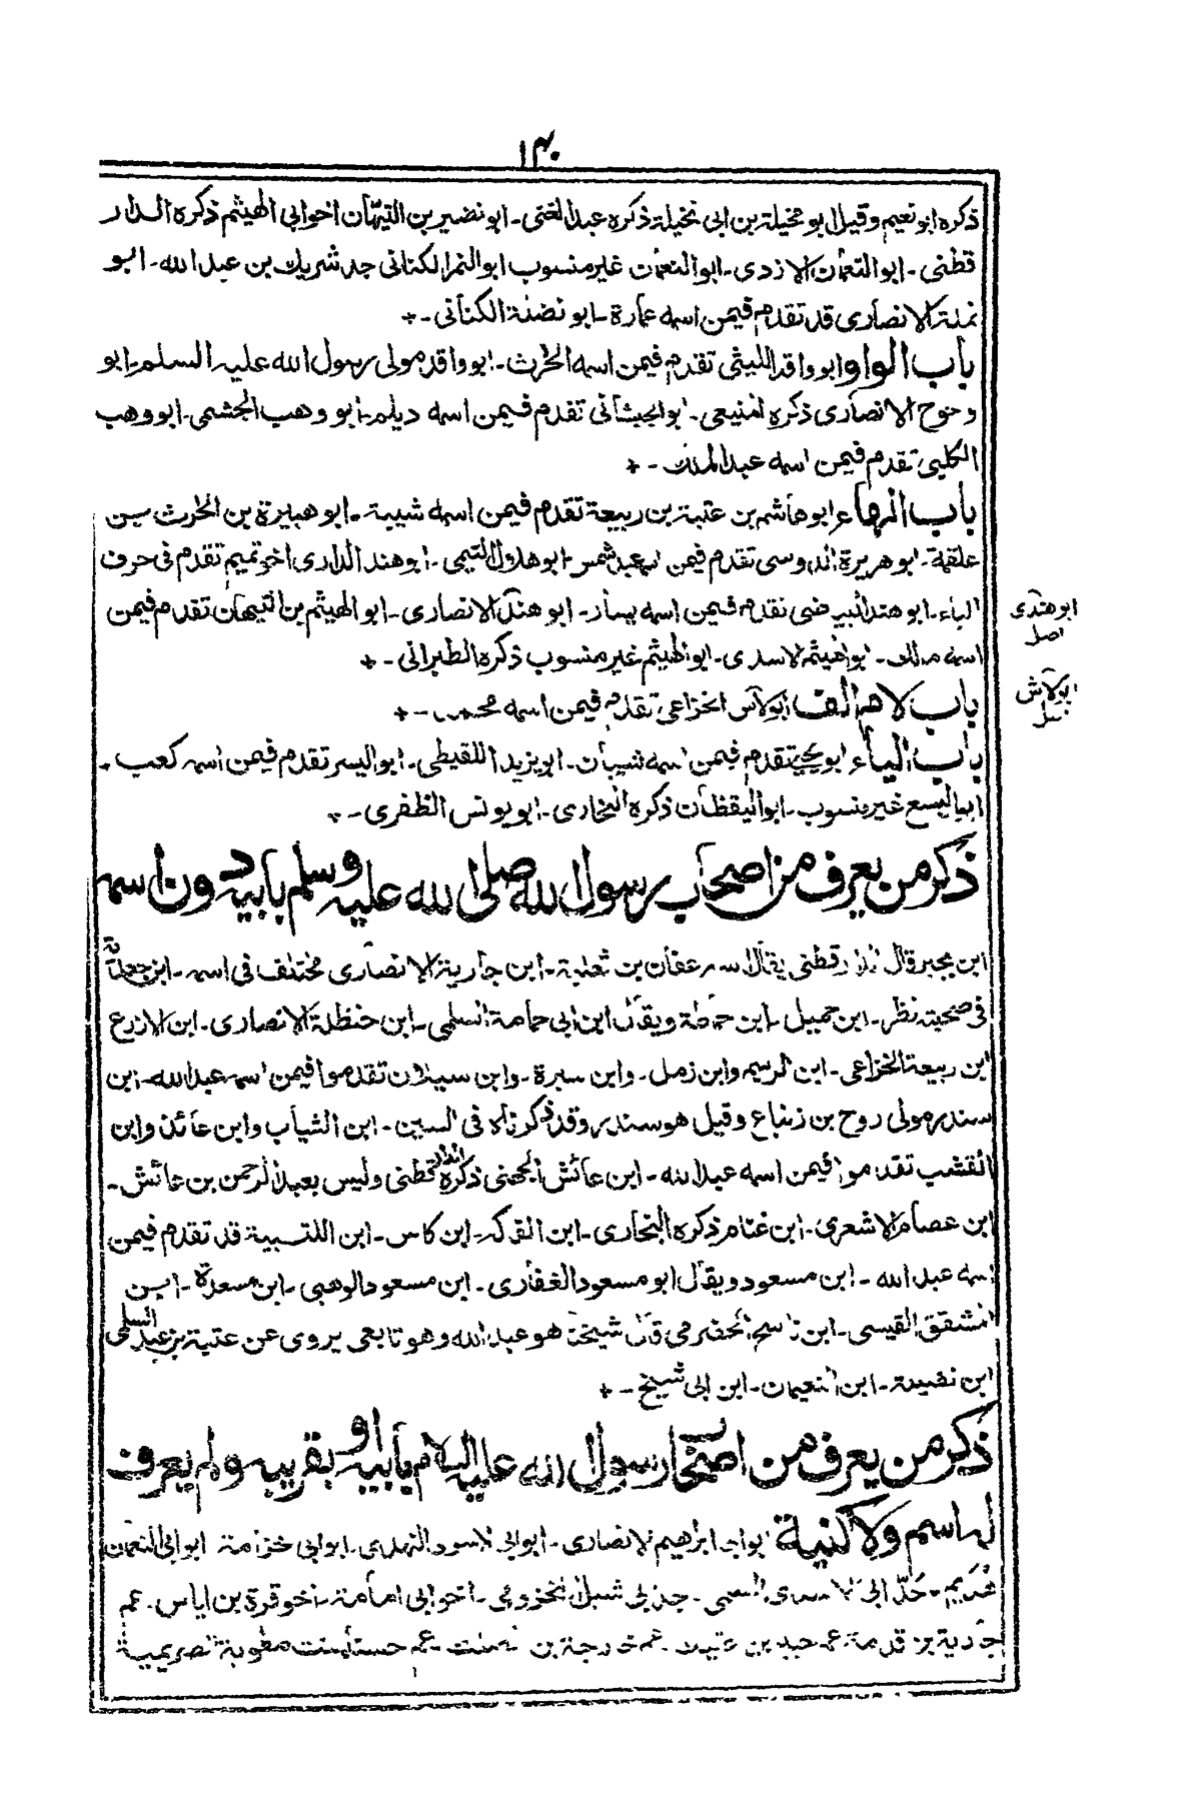 ١٣٠
ذكره ابو نعيم وقيل ابو نخيلة بن ابى نخيلة ذكره عبد الغنى - ابو نضير بن التيهان اخو ابى الهيثم ذكره الدار
قطنى - ابو النعمان الازدى - ابو النعمان غير منسوب ابو النمر الكنانى جد شريك بن عبد الله - ابو
نملة الانصارى قد تقدم فيمن اسمه عمارة - ابو نضلة الكنانى - +
باب الواو ابو واقد الليثى تقدم فيمن اسمه الحرث - ابو واقد مولى رسول الله عليه السلم - ابو
وحوح الانصارى ذكره المنيعى - ابو الجيشانى تقدم فيمن اسمه ديلم - ابو وهب الجشمى - ابو وهب
الكلبى تقدم فيمن اسمه عبد الملك - +
باب الهاء ابو هاشم بن عتبة بن ربيعة تقدم فيمن اسمه شيبة - ابو هبيرة بن الحرث بن
علقمة - ابو هريرة الدوسى تقدم فيمن اسمه عبد شمس - ابو هلال التيمى - ابو هند الدارى اخو تميم تقدم فى حرف
الباء - ابو هند البياضى تقدم فيمن اسمه يسار - ابو هند الانصارى - ابو الهيثم بن التيهان تقدم فيمن
ابو هندى
اصل
اسمه مالك - ابو الهيثم الاسدى - ابو الهيثم غير منسوب ذكره الطبرانى - +
باب لام الف ابو لاس الخزاعى تقدم فيمن اسمه محمد - +
ابو لاش
باب الياء ابو يحيى تقدم فيمن اسمه شيبان - ابو يزيد اللقيطى - ابو اليسر تقدم فيمن اسمه كعب -
ابو اليسع غير منسوب - ابو اليقظان ذكره البخارى - ابو يونس الظفرى - +
ذكر من يعرف من اصحاب رسول الله صلى الله عليه وسلم بابيه دون اسمه
ابن بجير قال الدار قطنى يقال اسمه عفان بن ثعلبة - ابن جارية الانصارى مختلف فى اسمه - ابن جعلة
فى صحبته نظر - ابن جميل - ابن حماطة ويقال ابن ابى حمامة السلمى - ابن حنظلة الانصارى - ابن الازرع
ابن ربيعة الخزاعى - ابن الرسيم وابن زمل - وابن سبرة - وابن سيلان تقدموا فيمن اسمه عبد الله - ابن
سندر مولى روح بن زنباع وقيل هو سندر وقد ذكرناه فى السين - ابن الشياب وابن عائذ وابن
القشب تقدموا فيمن اسمه عبد الله - ابن عائش الجهنى ذكره الدار قطنى وليس بعبد الرحمن بن عائش -
ابن عصام الاشعرى - ابن غنام ذكره البخارى - ابن الفركه - ابن كاس - ابن اللتبية قد تقدم فيمن
اسمه عبد الله - ابن مسعود ويقال ابو مسعود الغفارى - ابن مسعود الوهبى - ابن مسعدة - ابن
المشفق القيسى - ابن ناسح الحضرمى قال شيخنا هو عبد الله وهو تابعى يروى عن عتبة بن عبد السلمى
ابن نضيلة - ابن النعيمان - ابن ابى شيخ - +
ذكر من يعرف من اصحاب رسول الله عليه السلام بابيه او بقريبه ولم يعرف
له اسم ولا كنية ابو ابراهيم الانصارى - ابو ابى الاسود النهدى - ابو ابى خزامة ابو ابى النعمان
جد ابى السلمى - المخزومى - اخو ابى امامة - اخو قرة بن اياس - عم
عم خارجة بن الصلت - عم حسناء بنت معوية الصريمية